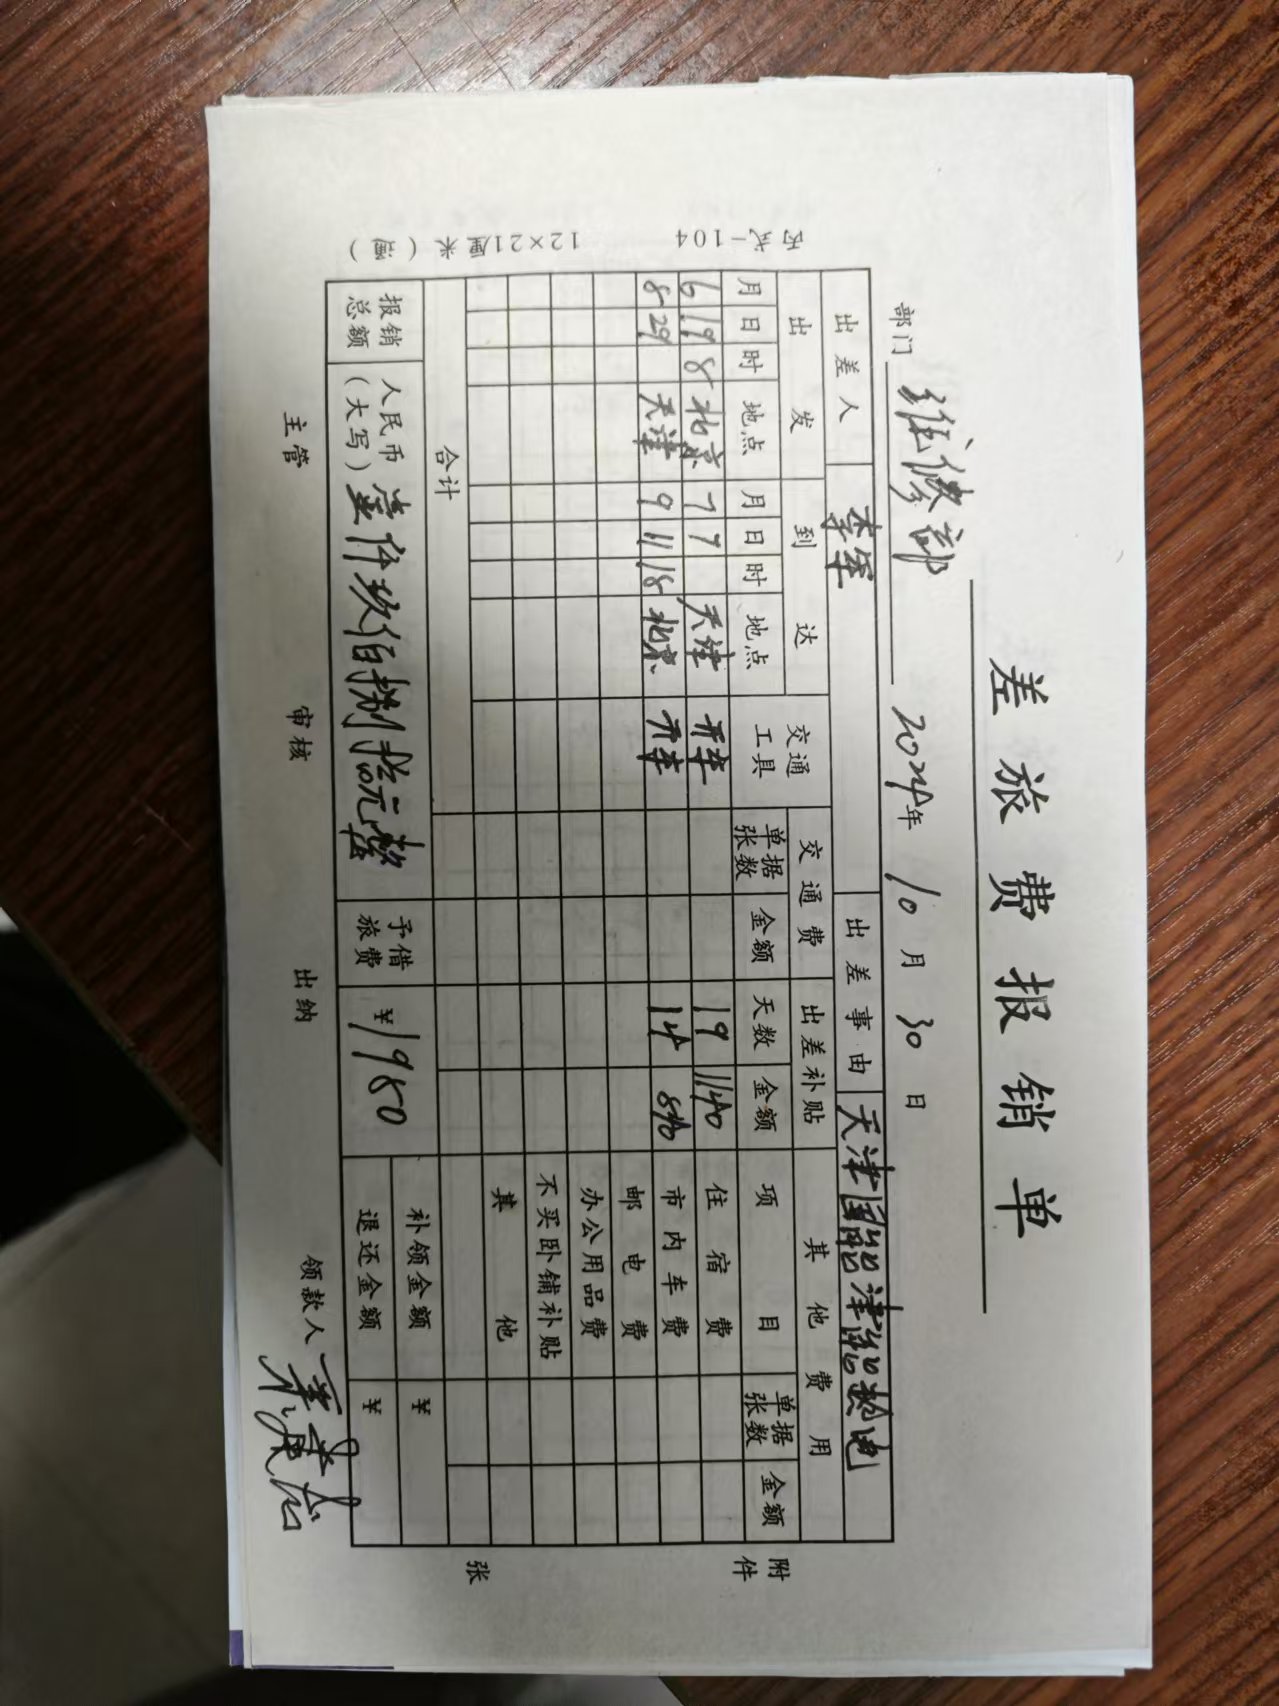 差旅费报销单
部门 维修部 2024年 10月 30日
出差人 李军 出差事由 天津国能津能热电
出发 到达 交通工具 交通费 出差补贴 其他费用
月 日 时 地点 月 日 时 地点 单据张数 金额 天数 金额 项目 单据张数 金额
6 19 8 北京 7 7 天津 开车 19 1140 住宿费
8 29 天津 9 11 18 北京 开车 14 840 市内车费
邮电费
办公用品费
不买卧铺补贴
其他
合计
报销总额 人民币(大写) 壹仟玖佰捌拾元整 予借旅费 ¥1980 补领金额 ¥
退还金额 ¥
主管 审核 出纳 领款人
附件 张
丙式-104 12×21厘米(通)